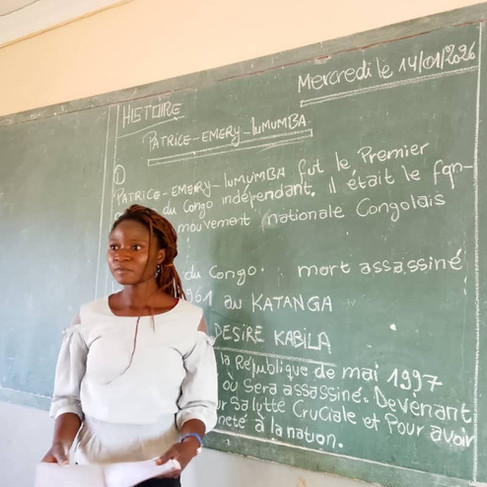 Mercredi le 14/01/2026
HISTOIRE
PATRICE-EMERY-LUMUMBA
①
PATRICE-EMERY-LUMUMBA fut le Premier
du Congo indépendant. il était le fon-
mouvement nationale Congolais
du Congo. mort assassiné
961 au KATANGA
DESIRE KABILA
la République de mai 1997
où Sera assassiné. Devenant
Salutte Cruciale et Pour avoir
à la nation.